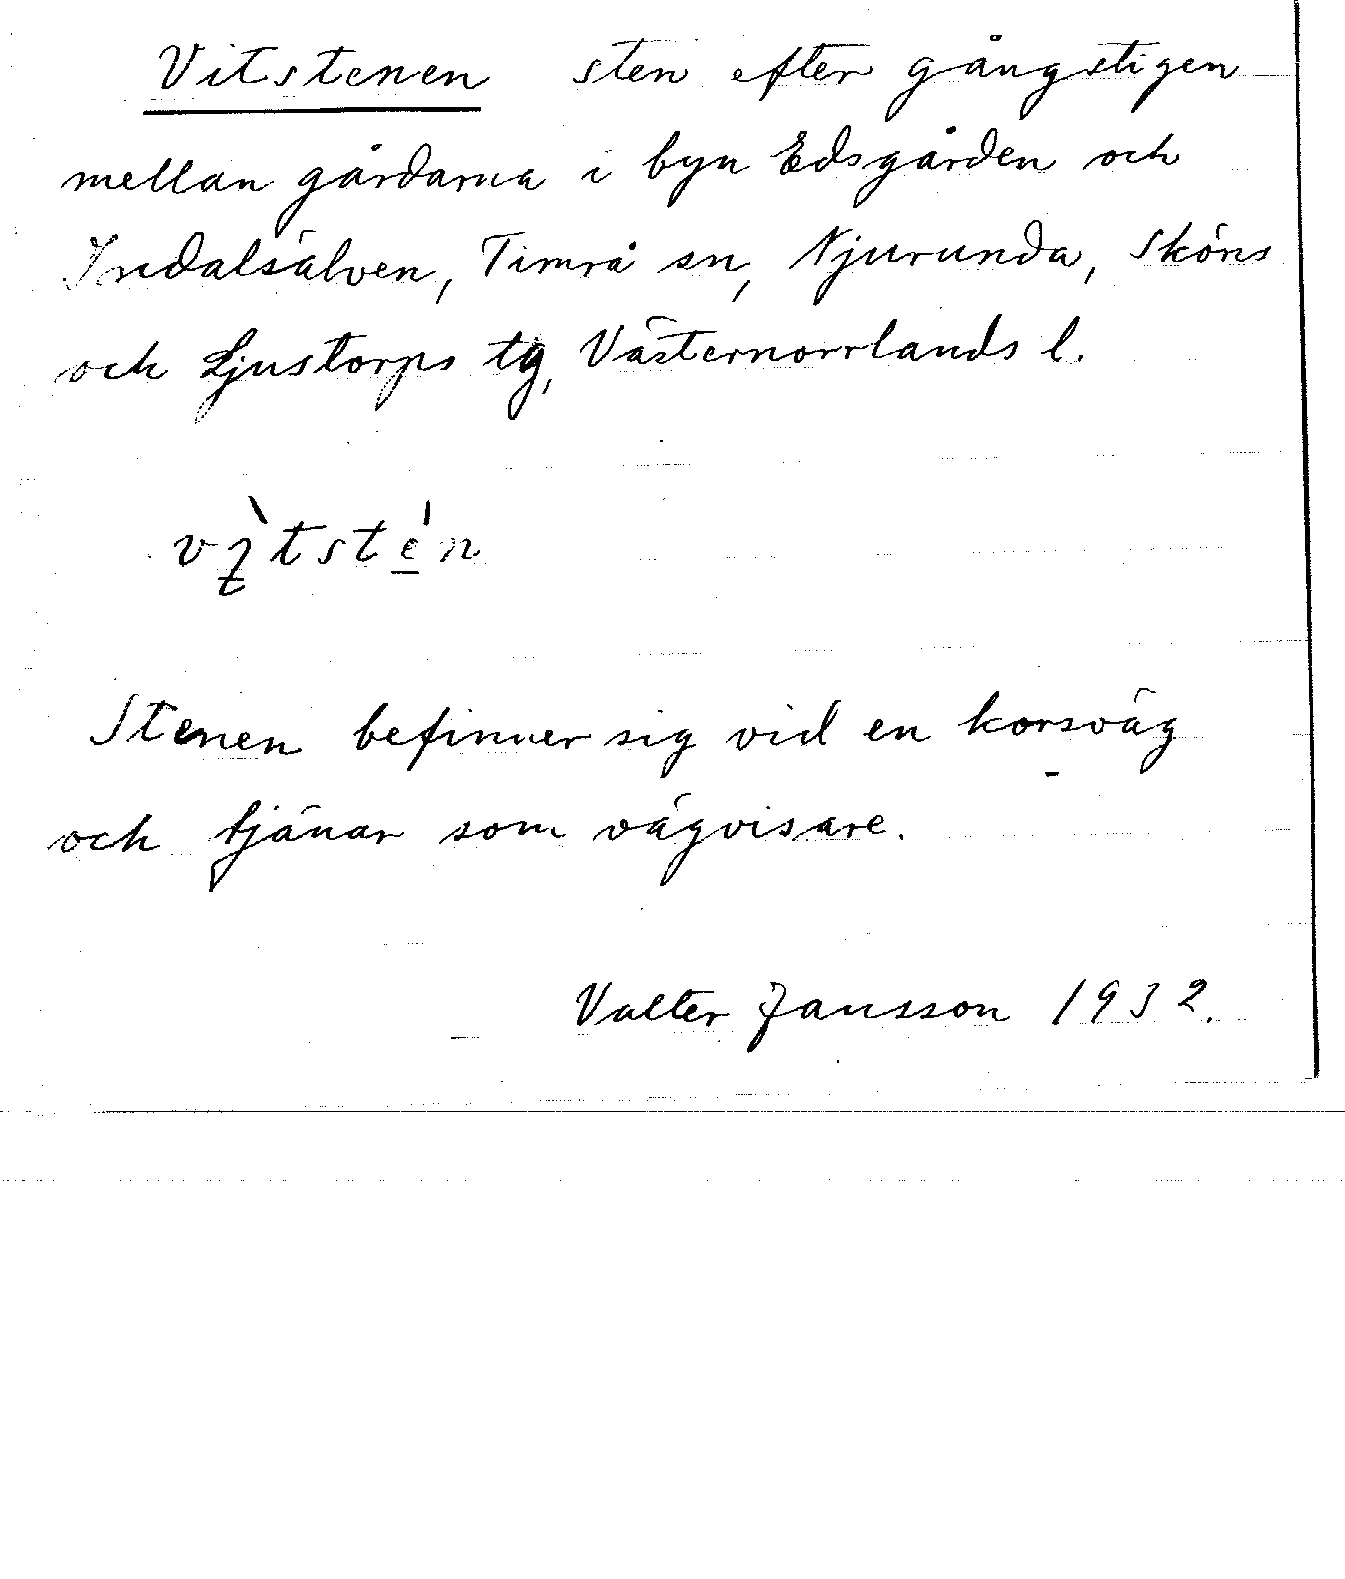 Vitstenen sten efter gångstigen
mellan gårdarna i byn Edsgården och
Indalsälven, Timrå sn, Njurunda, Sköns
och Ljustorps tg, Västernorrlands l.
vı̀tstén
Stenen befinner sig vid en korsväg
och tjänar som vägvisare.
Valter Jansson 1932.